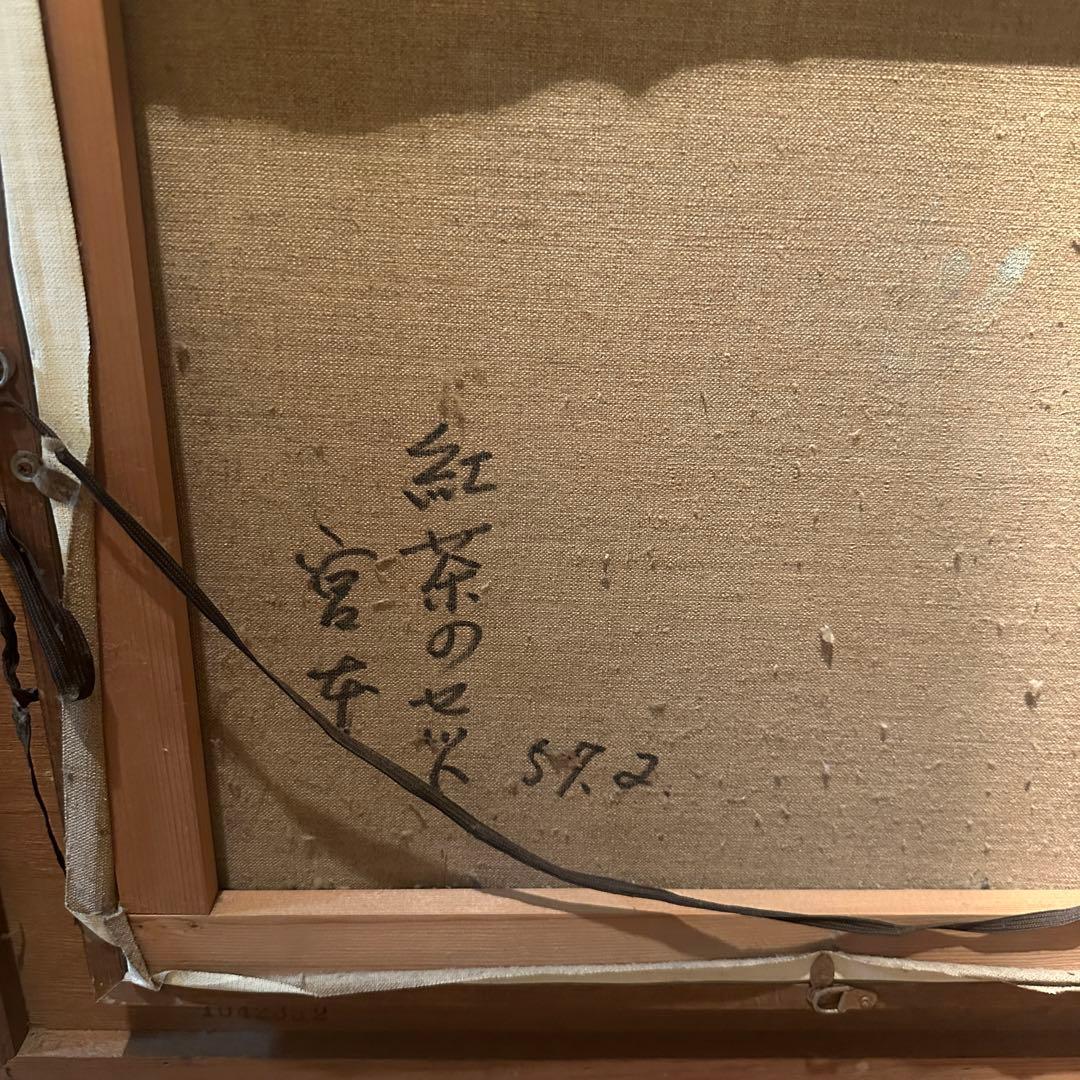 紅茶のセット
宮本
57.2
1042332